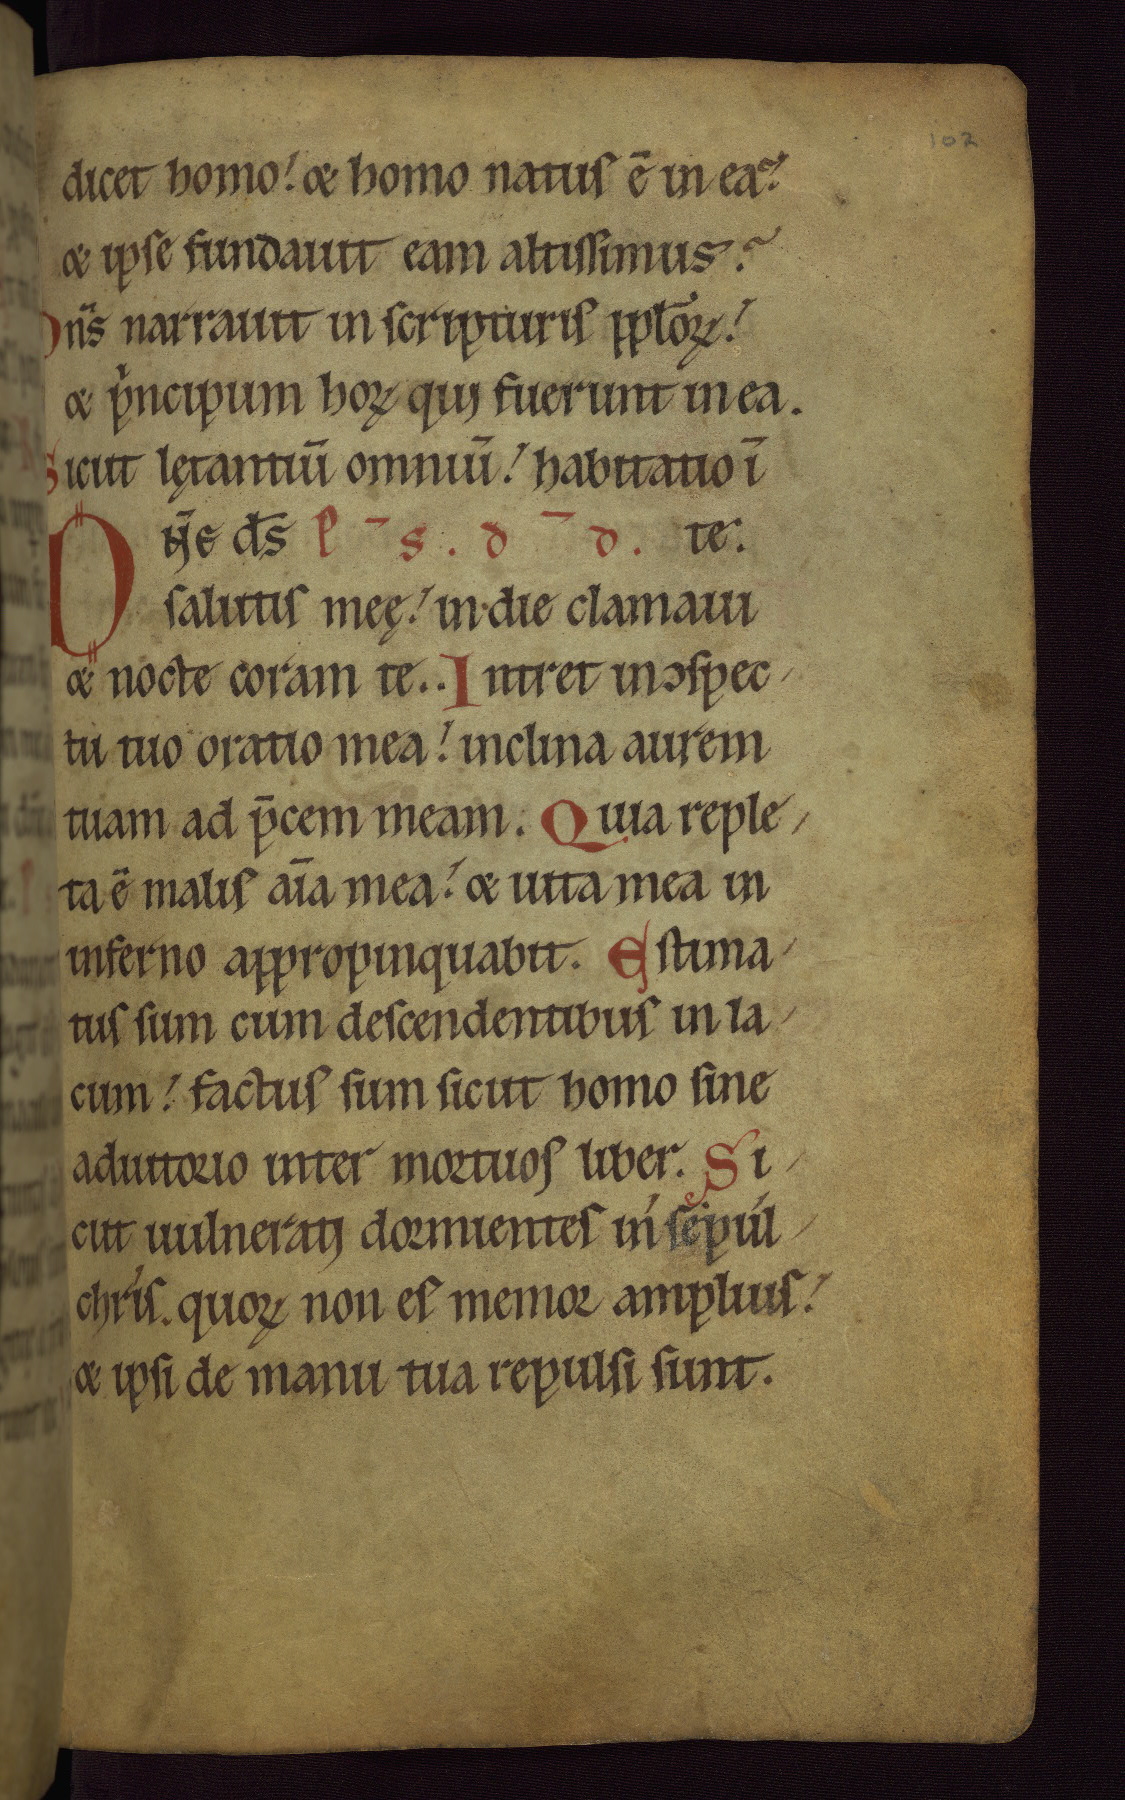 102
dicet homo! & homo natus ē in ea?
& ipse fundauit eam altissimus?
Dn̄s narrauit in scripturis pplōꝝ!
& pͥncipum hoꝝ qui fuerunt in ea.
Sicut lętantiū omniū! habitatio ī
Dn̄e ds̄ P ̄ s. d ̄ d. te.
salutis meę! in die clamaui
& nocte coram te. Intret in ɔspec
tu tuo oratio mea! inclina aurem
tuam ad p̄cem meam. Quia reple
ta ē malis aīa mea! & uita mea in
inferno appropinquabit. Estima
tus sum cum descendentibus in la
cum! factus sum sicut homo sine
adiutorio inter mortuos liber. Si
cut uulnerati dormientes in sepul
chris. quoꝝ non es memor amplius!
& ipsi de manu tua repulsi sunt.